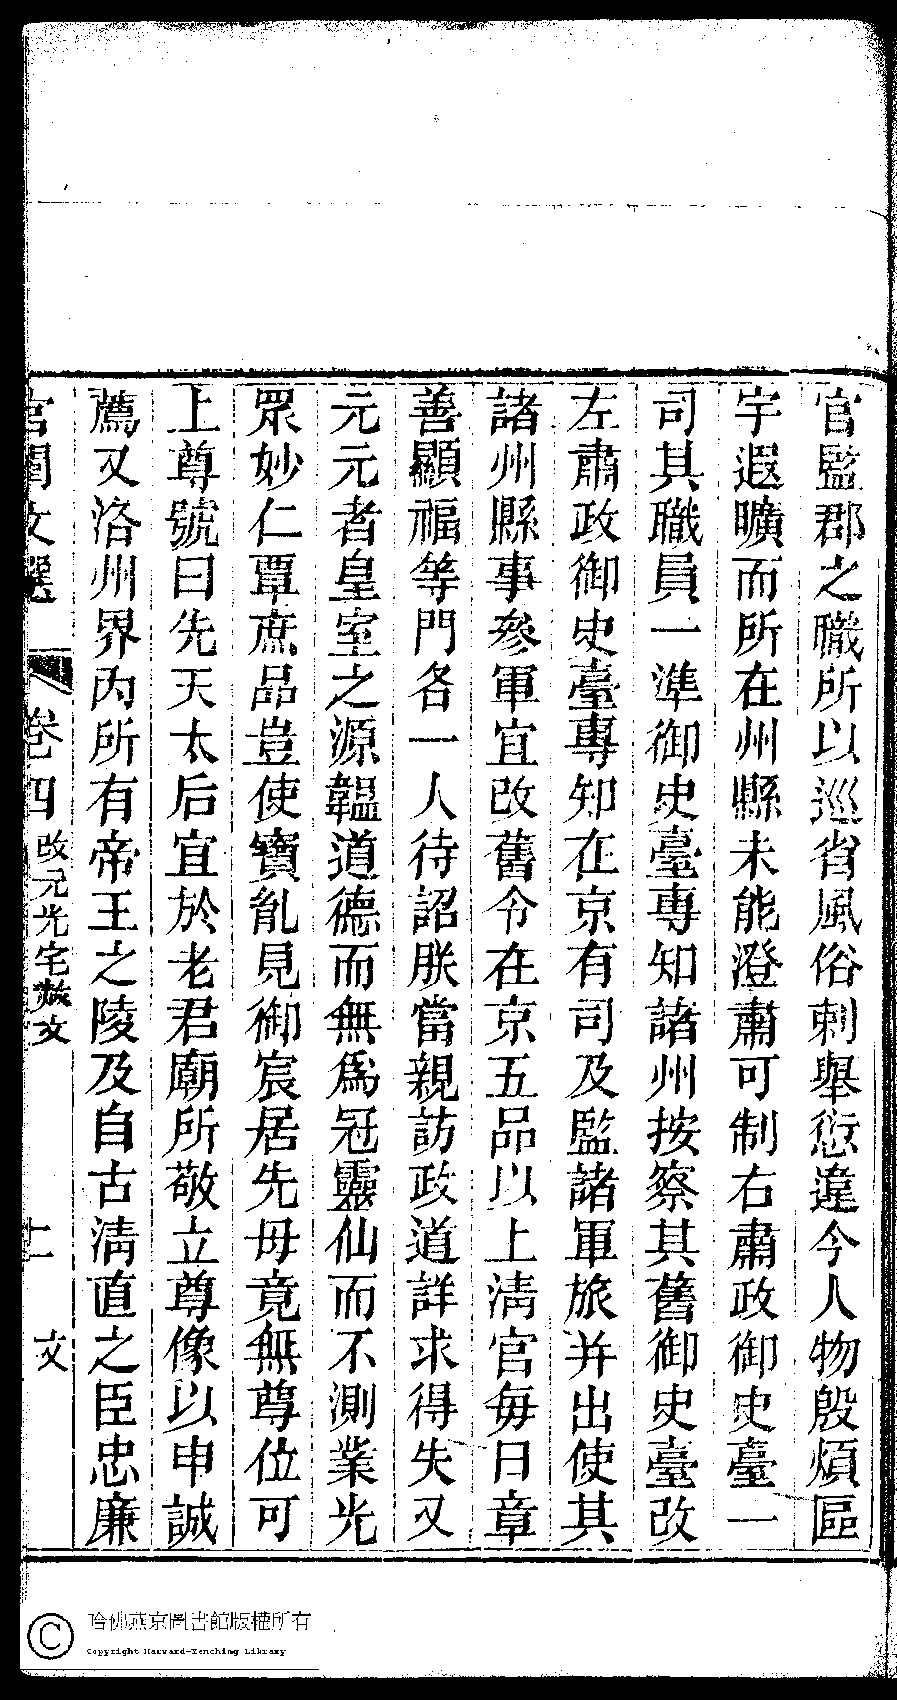 官監郡之職所以巡省風俗刺舉愆違今人物殷煩區
宇遐曠而所在州縣未能澄肅可制右肅政御史臺一
司其職員一準御史臺專知諸州按察其舊御史臺改
左肅政御史臺專知在京有司及監諸軍旅并出使其
諸州縣事參軍宜改舊令在京五品以上淸官每日章
善顯福等門各一人待詔朕當親訪政道詳求得失又
元元者皇室之源韞道德而無爲冠靈仙而不測業光
眾妙仁覃庶品豈使寶胤見御宸居先母竟無尊位可
上尊號曰先天太后宜於老君廟所敬立尊像以申誠
薦又洛州界内所有帝王之陵及自古淸直之臣忠廉
宮閨文選
卷四
改元光宅赦文
文
哈佛燕京圖書館版權所有
Copyright Harvard-Yenching Library